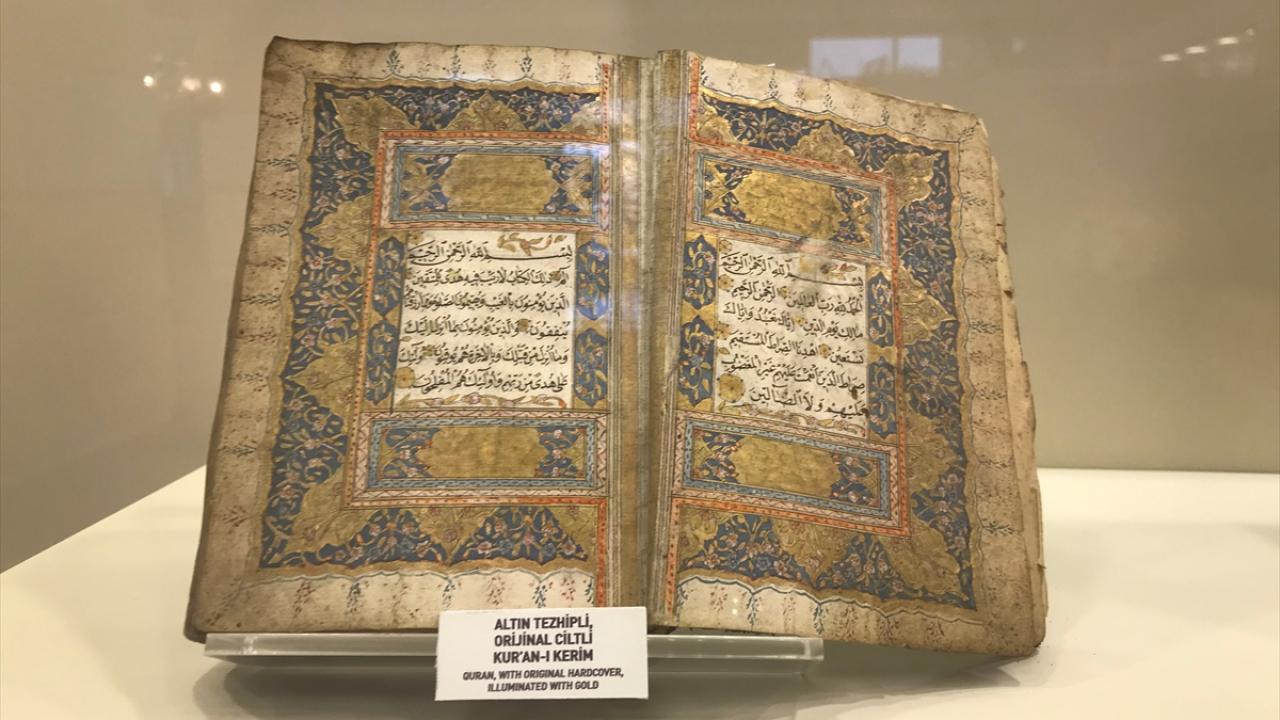 بِسْمِ اللهِ الرَّحْمٰنِ الرَّحِيمِ
اَلْحَمْدُ لِلّٰهِ رَبِّ الْعَالَمِينَ الرَّحْمٰنِ الرَّحِيمِ
مَالِكِ يَوْمِ الدِّينِ اِيَّاكَ نَعْبُدُ وَاِيَّاكَ
نَسْتَعِينُ اِهْدِنَا الصِّرَاطَ الْمُسْتَقِيمَ
صِرَاطَ الَّذِينَ اَنْعَمْتَ عَلَيْهِمْ غَيْرِ الْمَغْضُوبِ
عَلَيْهِمْ وَلَا الضَّالِّينَ
بِسْمِ اللهِ الرَّحْمٰنِ الرَّحِيمِ
الٓمٓ ذٰلِكَ الْكِتَابُ لَا رَيْبَ فِيهِ هُدًى لِلْمُتَّقِينَ
الَّذِينَ يُؤْمِنُونَ بِالْغَيْبِ وَيُقِيمُونَ الصَّلٰوةَ وَمِمَّا رَزَقْنَاهُمْ
يُنْفِقُونَ وَالَّذِينَ يُؤْمِنُونَ بِمَا اُنْزِلَ اِلَيْكَ
وَمَا اُنْزِلَ مِنْ قَبْلِكَ وَبِالْاٰخِرَةِ هُمْ يُوقِنُونَ اُولٰئِكَ
عَلٰى هُدًى مِنْ رَبِّهِمْ وَاُولٰئِكَ هُمُ الْمُفْلِحُونَ
ALTIN TEZHİPLİ,
ORİJİNAL CİLTLİ
KUR'AN-I KERİM
QURAN, WITH ORIGINAL HARDCOVER,
ILLUMINATED WITH GOLD